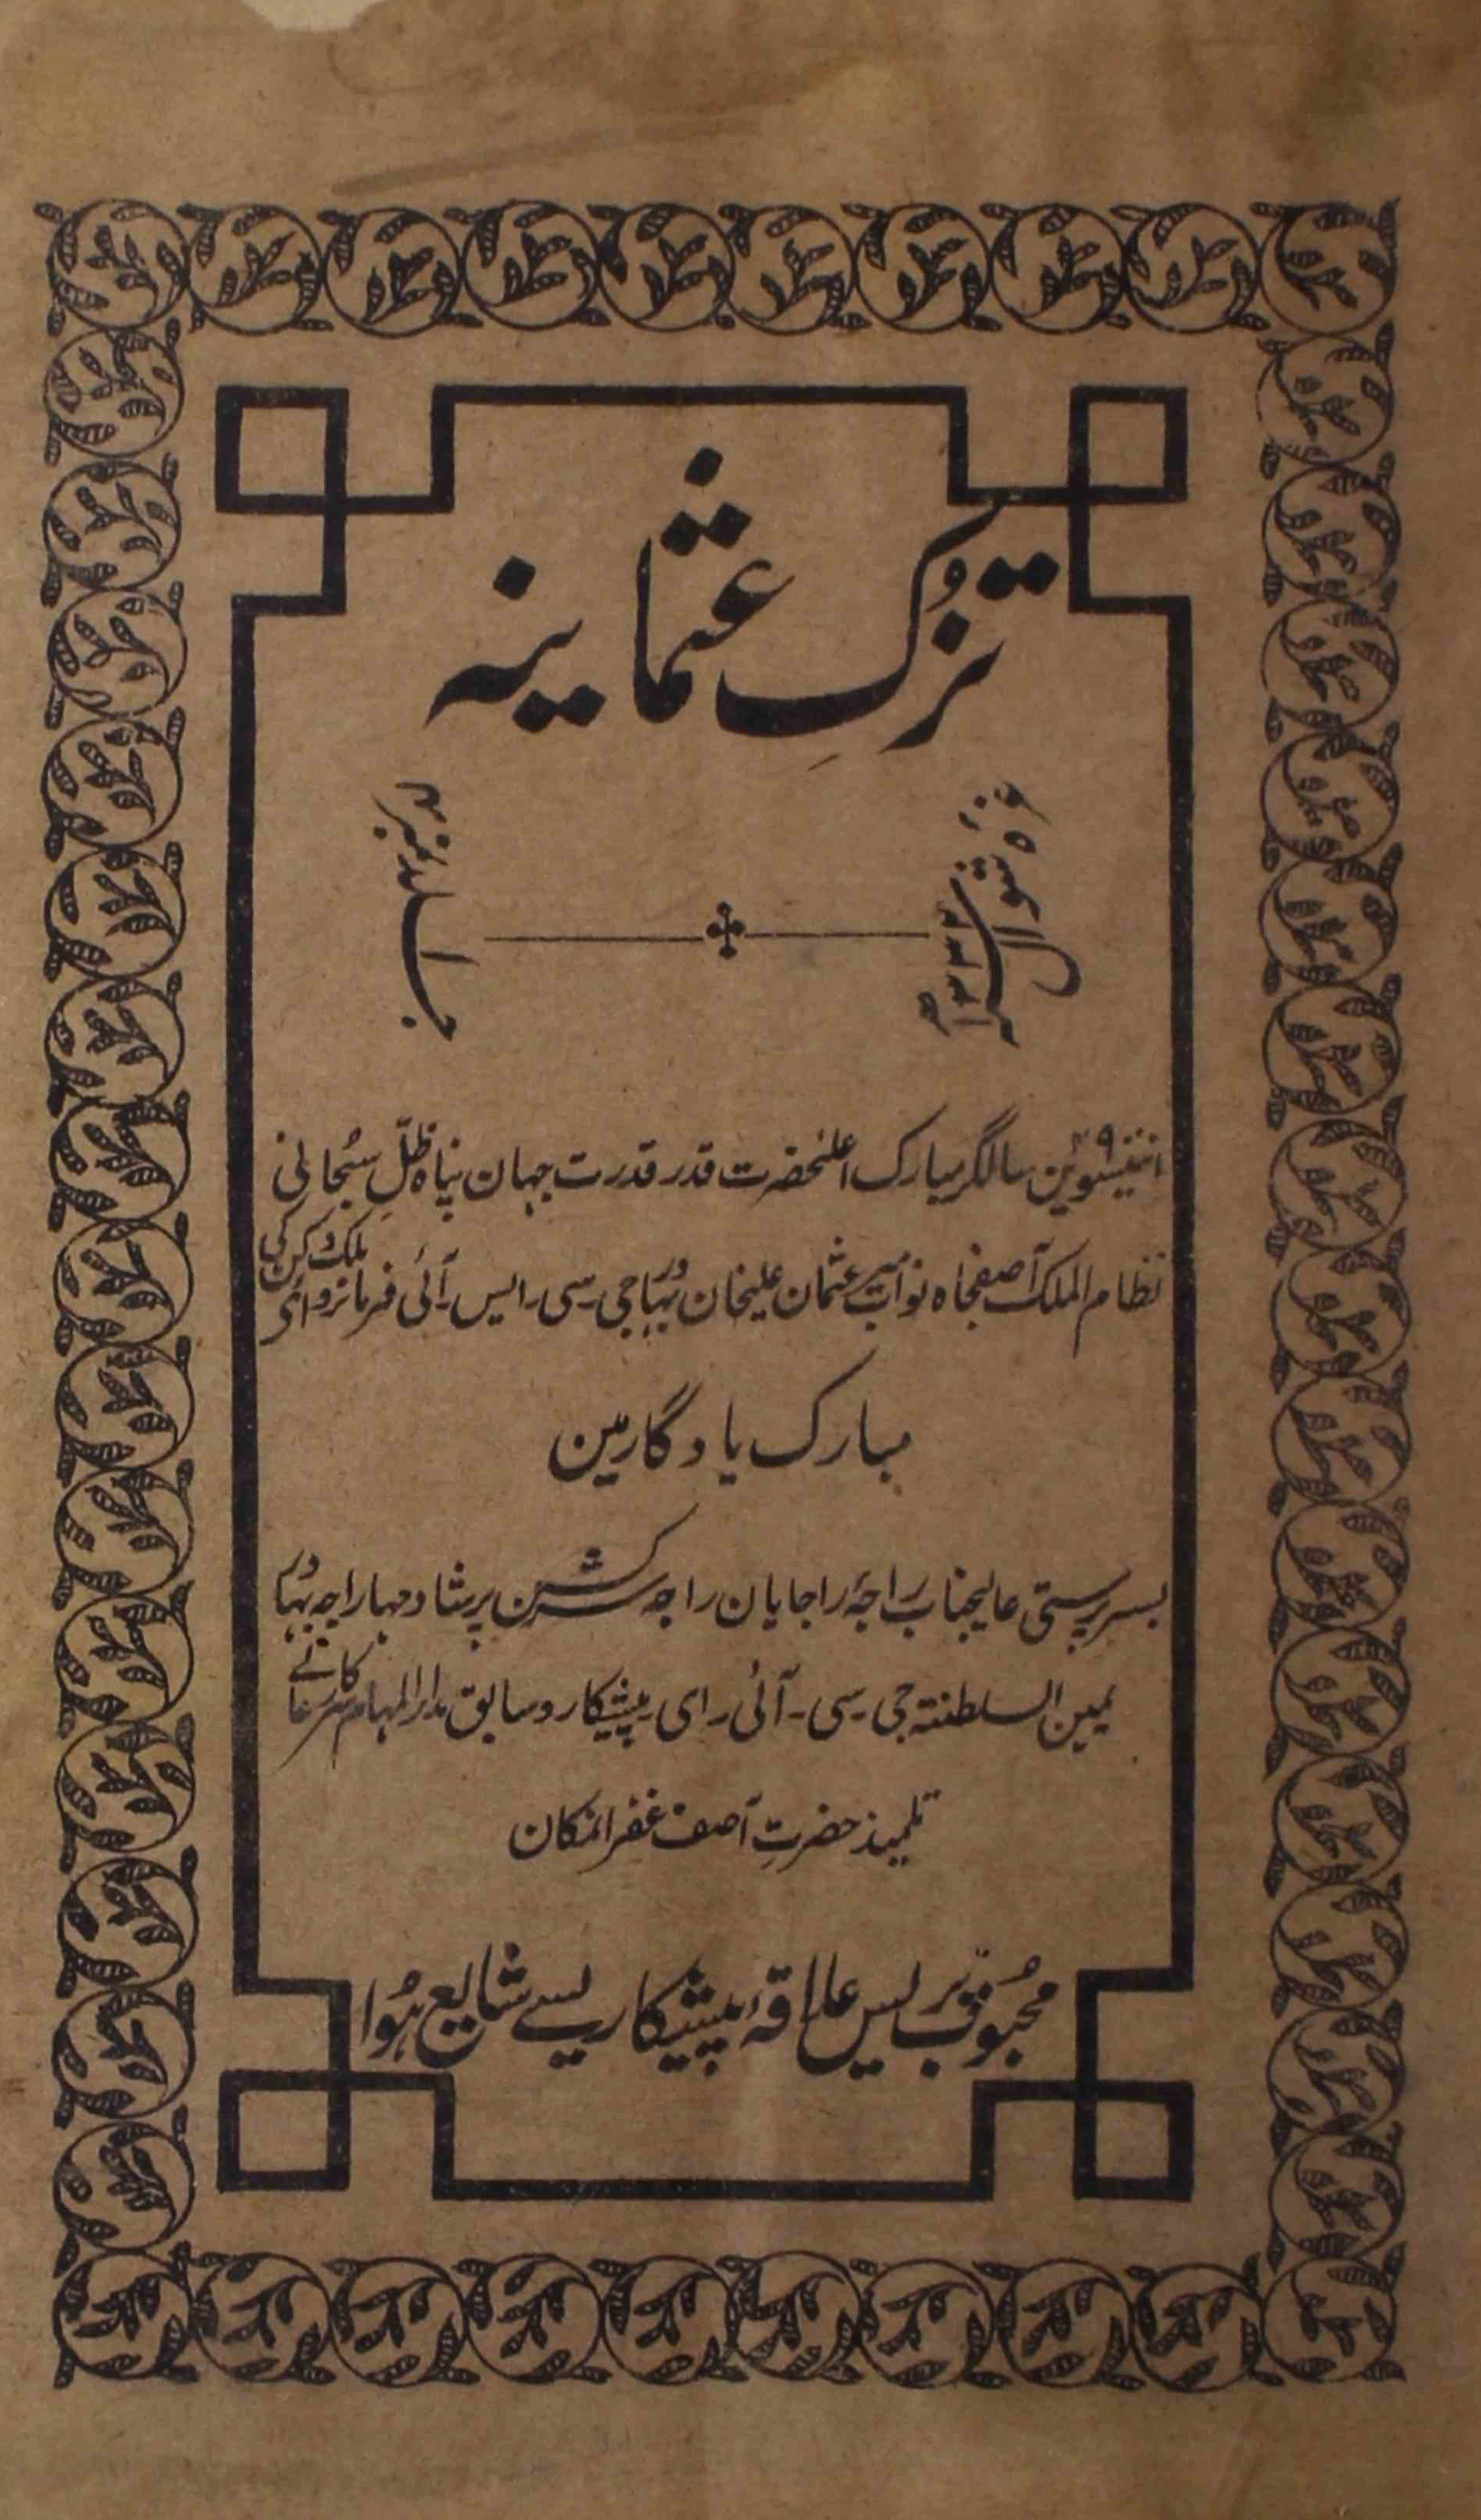 تزُکِ عثمانیہ
غرّہ شوال سنہ ۱۳۳۲ھ
جلد نمبر
انتیسوین ۲۹ سالگرہ مبارک اعلیٰحضرت قدر قدرت جہان پناہ ظلِّ سُبحانی
نظام الملک آصفجاہ نواب میر عثمان علیخان بہادر جی ۔ سی ۔ ایس ۔ آئی فرمانروای ملک دکن کی
مبارک یادگار مین
بسر پرستی عالیجناب راجۂ راجایان راجہ کشن پرشاد مہاراجہ بہادر
یمین السلطنتہ جی ۔ سی ۔ آئی ۔ ای ۔ پیشکار و سابق مدار المہام سرکار عالے
تلمیذ حضرتِ آصف غفرانمکان
محبُوب پریس علاقۂ پیشکاری سے شایع ہُوا